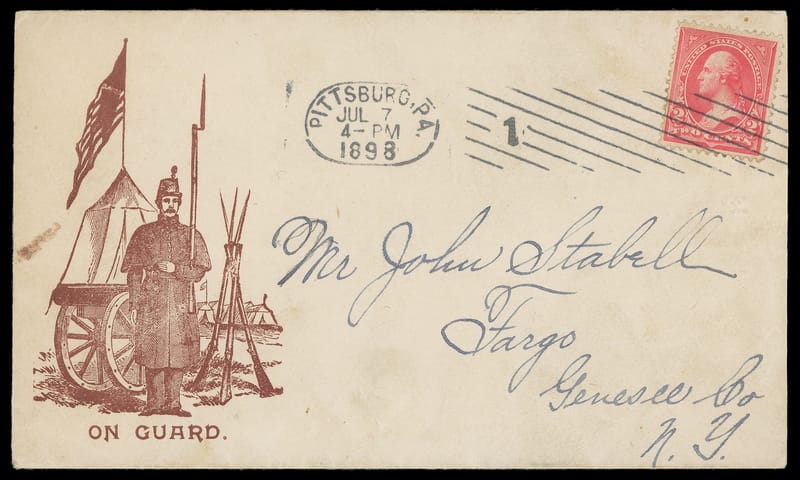 PITTSBURG, PA.
JUL 7
4-PM
1898
1
UNITED STATES POSTAGE
2 TWO CENTS 2
Mr John Stabell
Fargo
Genesee Co
N. Y.
ON GUARD.